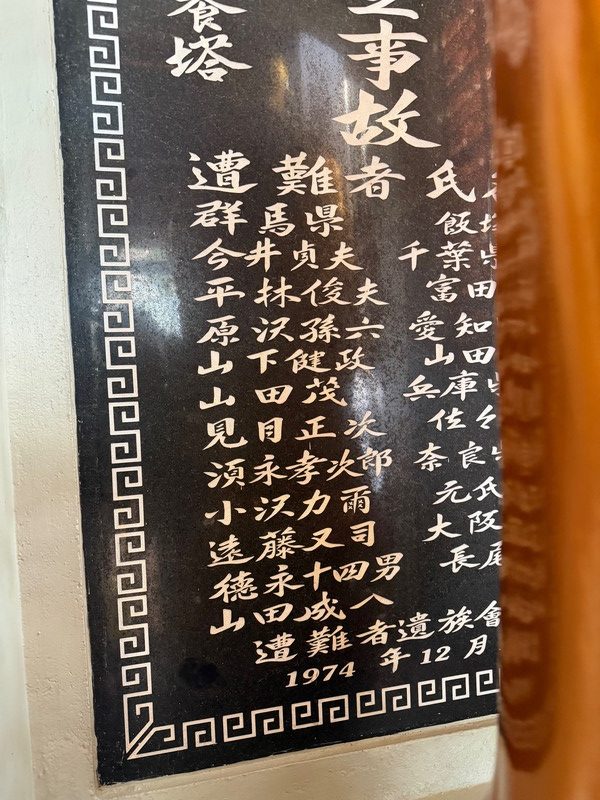 之事故
養塔
遭難者 氏
群馬県 飯
今井貞夫 千葉県
平林俊夫 富田
原沢孫六 愛知
山下健政 山田
山田茂 兵庫
見目正次 佐々
湏永孝次郎 奈良
小沢力爾 元氏
遠藤又司 大阪
徳永十四男 長尾
山田成八
遭難者遺族會
1974年12月